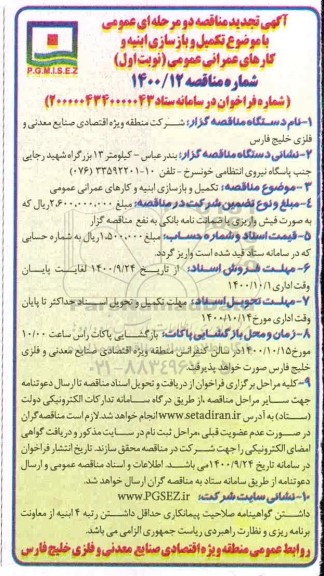 آگهی تجدید مناقصه دو مرحله ای عمومی
با موضوع تکمیل و بازسازی ابنیه و
کارهای عمرانی عمومی (نوبت اول)
شماره مناقصه ۱۴۰۰/۱۲
P.G.M.I.S.E.Z
(شماره فراخوان در سامانه ستاد ۲۰۰۰۰۰۴۳۴۰۰۰۰۰۴۳)
۱-نام دستگاه مناقصه گزار: شرکت منطقه ویژه اقتصادی صنایع معدنی و
فلزی خلیج فارس
۲-نشانی دستگاه مناقصه گزار: بندرعباس - کیلومتر ۱۳ بزرگراه شهید رجایی
جنب پاسگاه نیروی انتظامی خونسرخ - تلفن ۱۰-۳۳۵۹۲۲۰۱ (۰۷۶)
۳-موضوع مناقصه: تکمیل و بازسازی ابنیه و کارهای عمرانی عمومی
۴-مبلغ و نوع تضمین شرکت در مناقصه: مبلغ ۲,۶۰۰,۰۰۰,۰۰۰ ریال که
به صورت فیش واریزی یا ضمانت نامه بانکی به نفع مناقصه گزار
۵-قیمت اسناد و شماره حساب: مبلغ ۱,۵۰۰,۰۰۰ ریال به شماره حسابی
که در سامانه ستاد قید شده است واریز گردد.
۶-مهلت فروش اسناد: از تاریخ ۱۴۰۰/۹/۲۴ لغایت پایان
وقت اداری ۱۴۰۰/۱۰/۱
۷-مهلت تحویل اسناد: مهلت تکمیل و تحویل اسناد حداکثر تا پایان
وقت اداری مورخ ۱۴۰۰/۱۰/۱۴
۸-زمان و محل بازگشایی پاکات: بازگشایی پاکات رأس ساعت ۱۰/۰۰
مورخ ۱۴۰۰/۱۰/۱۵ در سالن کنفرانس منطقه ویژه اقتصادی صنایع معدنی و فلزی
خلیج فارس صورت خواهد پذیرفت.
۹-کلیه مراحل برگزاری فراخوان از دریافت و تحویل اسناد مناقصه تا ارسال دعوتنامه
جهت سایر مراحل مناقصه، از طریق درگاه سامانه تدارکات الکترونیکی دولت
(ستاد) به آدرس www.setadiran.ir انجام خواهد شد. لازم است مناقصه گران
در صورت عدم عضویت قبلی، مراحل ثبت نام در سایت مذکور و دریافت گواهی
امضای الکترونیکی را جهت شرکت در مناقصه محقق سازند. تاریخ انتشار فراخوان
در سامانه تاریخ ۱۴۰۰/۹/۲۴ می باشد. اطلاعات و اسناد مناقصه عمومی و ارسال
دعوتنامه از طریق سامانه ستاد به مناقصه گران ارسال خواهد شد.
۱۰-نشانی سایت شرکت: www.PGSEZ.ir
داشتن گواهینامه صلاحیت پیمانکاری حداقل داشتن رتبه ۴ ابنیه از معاونت
برنامه ریزی و نظارت راهبردی ریاست جمهوری الزامی می باشد.
روابط عمومی منطقه ویژه اقتصادی صنایع معدنی و فلزی خلیج فارس